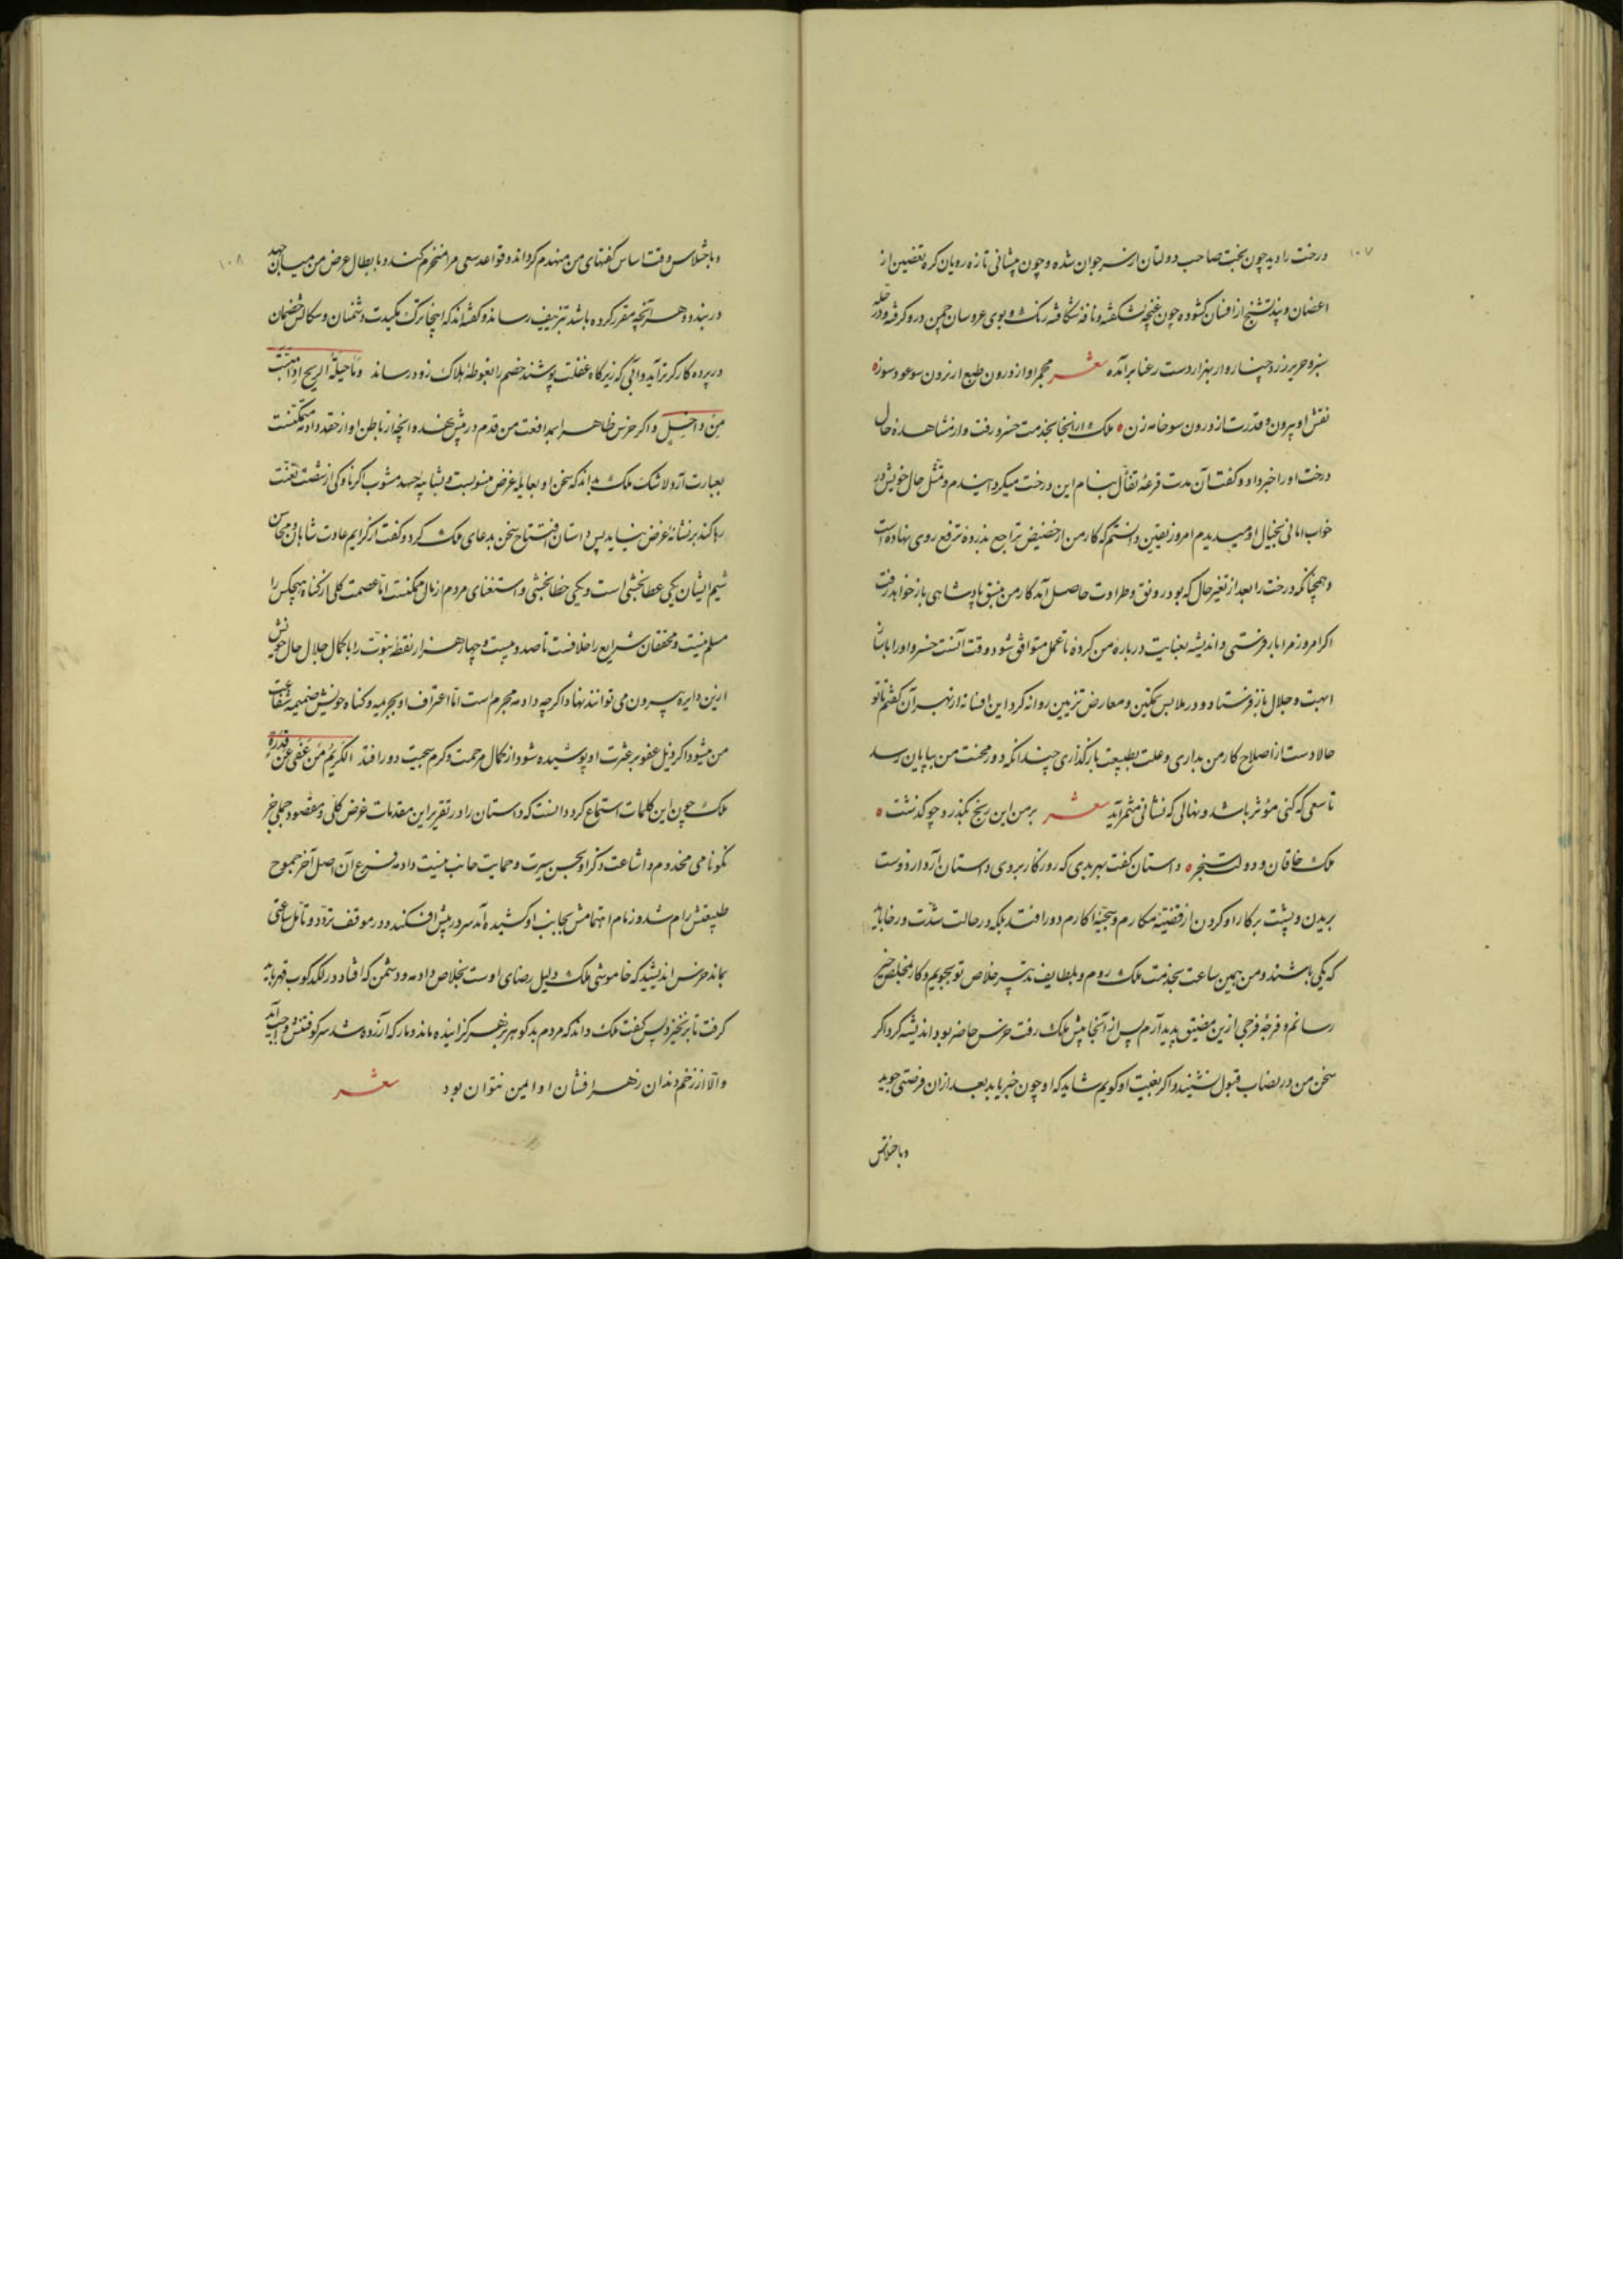 ۱۰۷
درخت را دید چون بخت صاحب دولتان از سر جوان شده و چون پیشانی تازه رویان کره تغضین از
اغصان و بند تشنج از افنان کشوده چون غنچه بشکفته و نافه شکافته رنک و بوی عروسان چمن درو کرفته و در حله
سبز و حریر زرد چنار وار بهزار دست رعنا برآمده شعر مجمر او از درون طبع از برون سو عود سوز
نقش او بیرون و قدرت از درون سو خامه زن ملک از انجا بخدمت خسرو رفت و از مشاهده حال
درخت او را خبر داد و کفت آن مدت قرعه تفأل بنام این درخت میکردانیدم و تمثل حال خویش در
خواب امانی بخیال او میدیدم امروز بیقین دانستم که کار من از حضیض تراجع بذروه ترفع روی نهاده است
و همچنانکه درخت را بعد از تغیر حال که بود رونق و طراوت حاصل آمد کار من بنسق پادشاهی باز خواهد رفت
اکر امروز مرا باز فرستی و اندیشه بعنایت درباره من کرده با عمل متوافق شود وقت آنست خسرو او را با ساز
اهبت و جلال باز فرستاد و در ملابس تمکین و معارض تزیین روانه کرد این افسانه از بهر آن کفتم تا تو
حالا دست از اصلاح کار من بداری و علت بطبیعت باز کذاری چندانکه دور محنت من بپایان رسد
تا سعی که کنی مؤثر باشد و نهالی که نشانی مثمر آید شعر بر من این رنج بکذرد چو کذشت
ملک خاقان و دولت سنجر داستان کفت بهر بدی که روزکار بروی دوستان آرد از دوست
بریدن و پشت بر کار او کردن از قضیه مکارم و سجیه اکارم دور افتد بلکه در حالت شدت و رخا باید
که یکی باشند و من همین ساعت بخدمت ملک روم و بلطایف تدبیر خلاص تو بجویم و کار بمخلص خیر
رسانم و فرجه فرجی ازین مضیق پدید آرم پس از آنجا پیش ملک رفت خرس حاضر بود اندیشه کرد اکر
سخن من در نصاب قبول ننشیند و اکر بغیبت او کویم شاید که او چون خبر یابد بعد از ان فرصتی جوید
و باختلاس
۱۰۸
و باختلاس وقت اساس کفتهای من منهدم کرداند و قواعد سعی مرا منخرم کند و بابطال غرض من میان جهد
در بندد و هر آنچه مقرر کرده باشد بتزییف رساند و کفته اند که اینجا ترک مکیدت دشمنان و سکالش خصمان
در پرده کارکرتر آید و آبی که زیر کاه غفلت پوشند خصم را بغوطه هلاک زود رساند و ما حیلة الریح اذا هبت
من داخل و اکر خرس ظاهرا بمدافعت من قدم در پیش نهد و آنچه از باطن او از حقد دادمه متمکنست
بعبارت آرد لا شک ملک بداند که سخن او بغایله غرض منسوبست و بشایبه حسد مشوب اکر ناوکی از شست تعنت
رها کند بر نشانه غرض نیاید پس داستان افتتاح سخن بدعای ملک کرد و کفت از کرایم عادت شاهان و محاسن
شیم ایشان یکی عطابخشی است و یکی خطابخشی و استغنای مردم از مال ممکنست اما عصمت کلی از کناه هیچکس را
مسلم نیست و محققان شرایع را خلافست تا صد و بیست و چهار هزار نقطه نبوت را با کمال جلال حال خویش
ازین دایره بیرون می توانند نهاد اکر چه دادمه مجرم است اما اعتراف او بجریمه و کناه خویش ضمیمه شفاعت
من میشود اکر ذیل عفو بر عثرت او پوشیده شود از کمال مرحمت و کرم سجیت دور افتد الکریم من عفی عن قدرة
ملک چون این کلمات استماع کرد دانست که داستان را در تقریر این مقدمات غرض کلی و مقصود جملی جز
نکونامی مخدوم و اشاعت ذکر او بحسن سیرت و حمایت جانب نیست دادمه فرع آن اصل آخر جموح
طبیعتش رام شد و زمام اهتمامش بجانب او کشیده آمد سر در پیش افکند و در موقف تردد و تأمل ساعتی
بماند خرس اندیشید که خاموشی ملک دلیل رضای اوست بخلاص دادمه و دشمن که افتاد در لکدکوب قهر باید
کرفت تا بر نخیزد پس کفت ملک داند که مردم بدکوهر بزهر کزاینده ماند و مار که آزرده شد سر کوفتنش واجب آید
و الا از زخم دندان زهر افشان او ایمن نتوان بود شعر